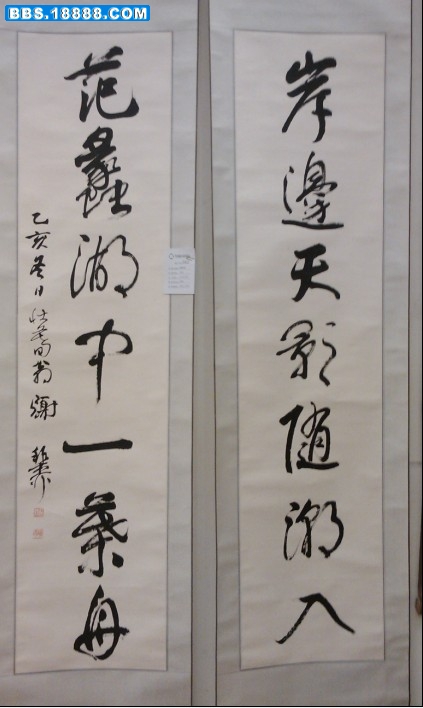 BBS.18888.COM
岸邊天影随潮入
范蠡湖中一葉舟
乙亥冬日壮暮翁謝稚柳